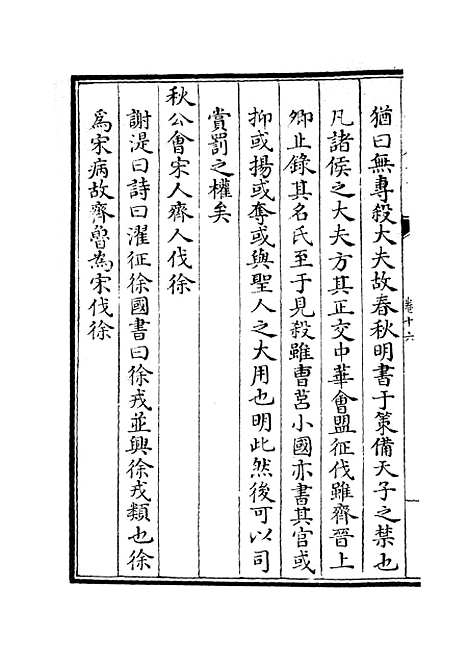 猶曰無專殺大夫故春秋明書于策備天子之禁也
凡諸侯之大夫方其正交中華會盟征伐雖齊晉上
卿止錄其名氏至于見殺雖曹莒小國亦書其官或
抑或揚或奪或與聖人之大用也明此然後可以司
賞罰之權矣
秋公會宋人齊人伐徐
謝湜曰詩曰濯征徐國書曰徐戎並興徐戎類也徐
為宋病故齊魯為宋伐徐
卷十六